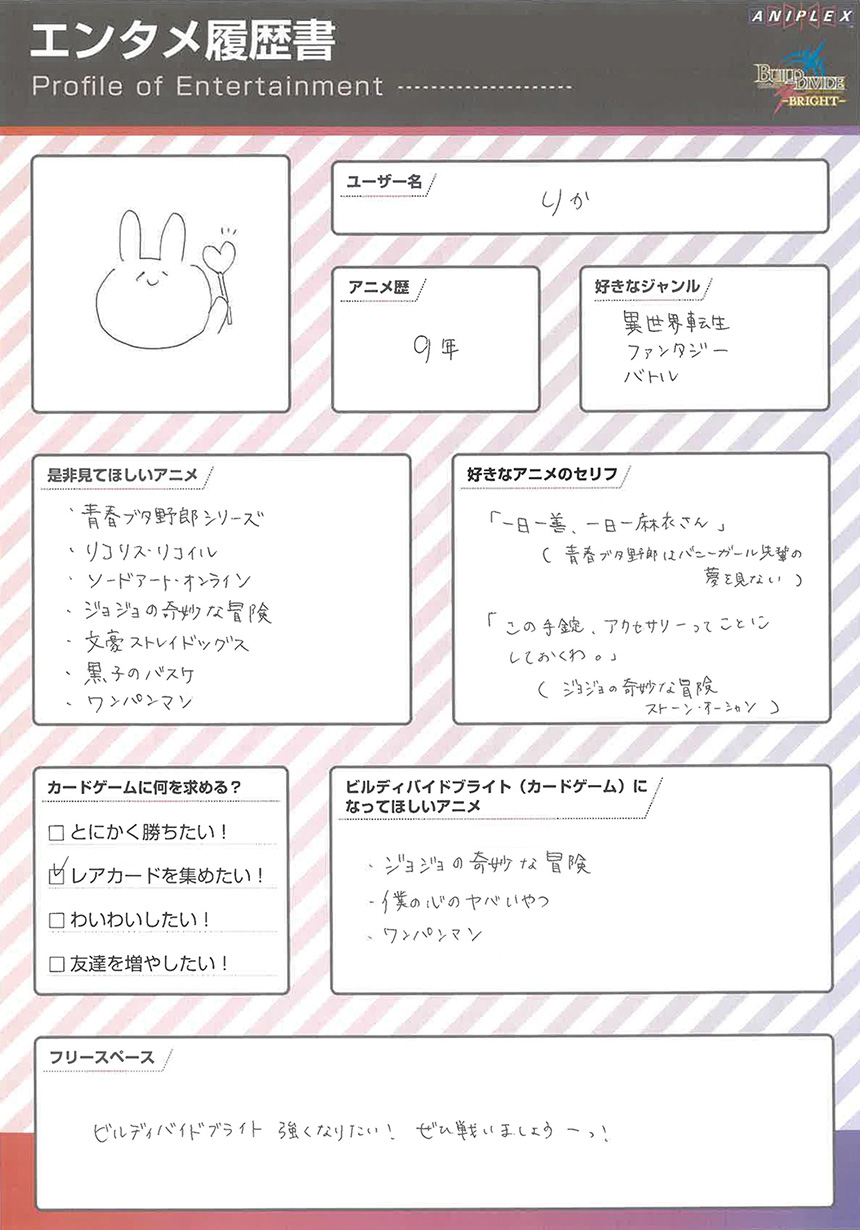 エンタメ履歴書
Profile of Entertainment
ANIPLEX
BUILD DIVIDE
-BRIGHT-
ユーザー名
りか
アニメ歴
9年
好きなジャンル
異世界転生
ファンタジー
バトル
是非見てほしいアニメ
・青春ブタ野郎シリーズ
・リコリス・リコイル
・ソードアート・オンライン
・ジョジョの奇妙な冒険
・文豪ストレイドッグス
・黒子のバスケ
・ワンパンマン
好きなアニメのセリフ
「一日一善、一日一麻衣さん」
(青春ブタ野郎はバニーガール先輩の
夢を見ない)
「この手錠、アクセサリーってことに
しておくわ。」
(ジョジョの奇妙な冒険
ストーン・オーシャン)
カードゲームに何を求める？
□とにかく勝ちたい！
☑レアカードを集めたい！
□わいわいしたい！
□友達を増やしたい！
ビルディバイドブライト（カードゲーム）に
なってほしいアニメ
・ジョジョの奇妙な冒険
・僕の心のヤバいやつ
・ワンパンマン
フリースペース
ビルディバイドブライト 強くなりたい！ ぜひ戦いましょうーっ！